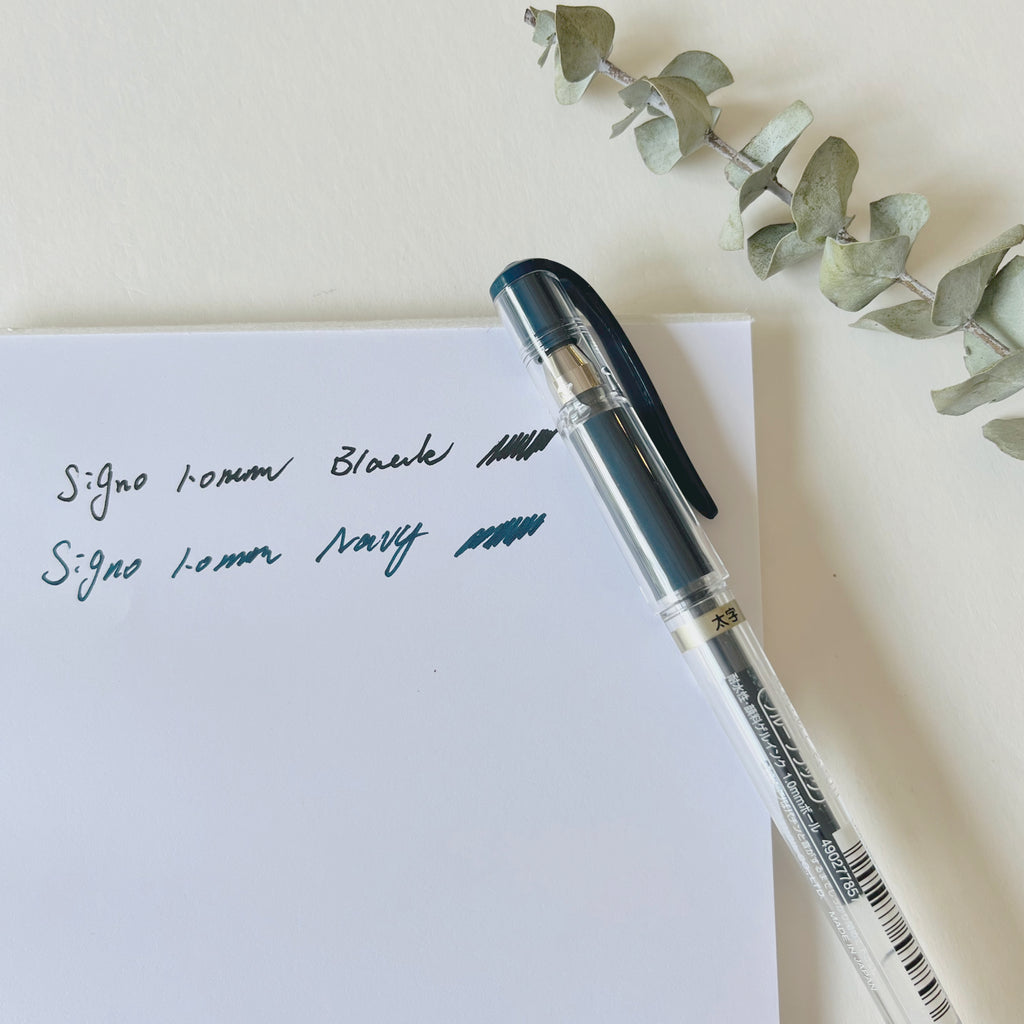 Signo 1.0mm Black
Signo 1.0mm Navy
太字
ブルーブラック
耐水性・顔料ゲルインク 1.0mmボール 49027785
MADE IN JAPAN